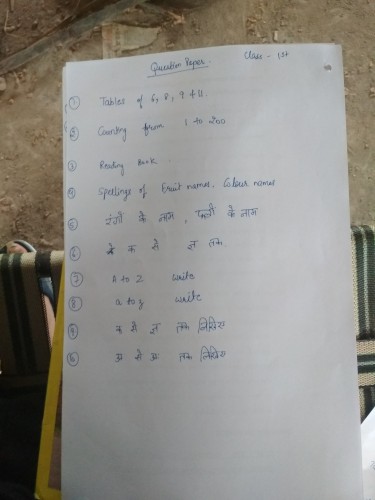 Question Paper.
Class - 1st
① Tables of 6, 8, 9 + 11.
② Counting from 1 to 200
③ Reading Book.
④ Spellings of Fruit names, Colour names
⑤ रंगों के नाम, फलों के नाम
⑥ क से ज्ञ तक.
⑦ A to Z write
⑧ a to z write
⑨ क से ज्ञ तक लिखिए
⑩ अ से अः तक लिखिए